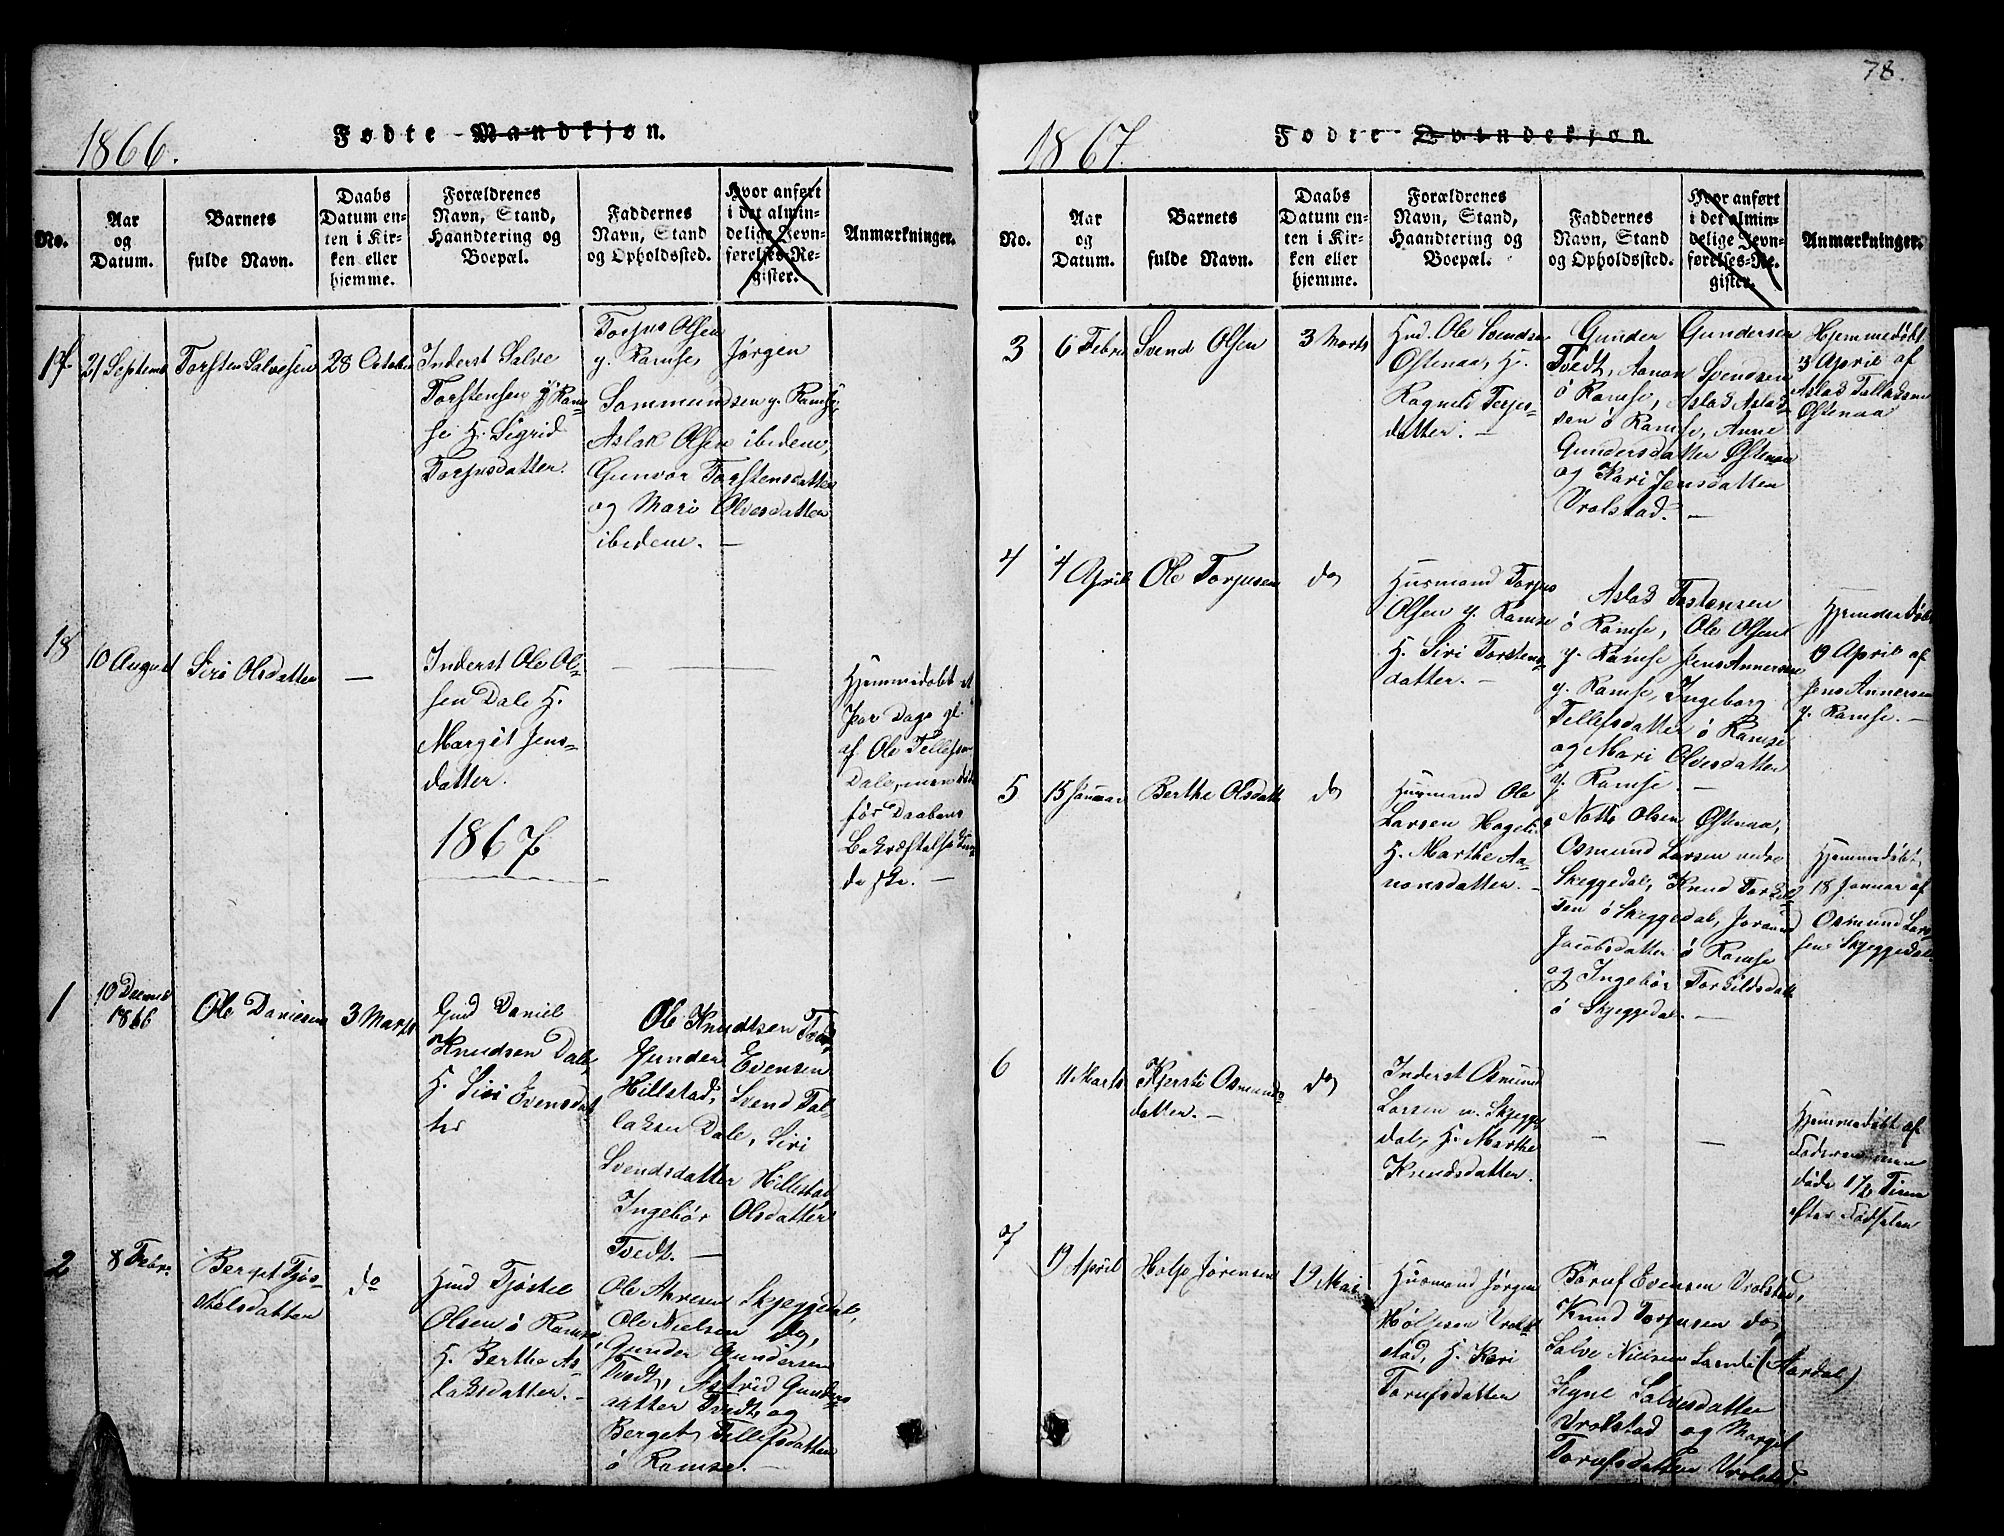 78.
1866.
Fødte Mandkjøn.
No.
Aar
og
Datum.
Barnets
fulde Navn.
Daabs
Datum en-
ten i Kir-
ken eller
hjemme.
Forældrenes
Navn, Stand,
Haandtering og
Boepæl.
Faddernes
Navn, Stand
og Opholdssted.
Hvor anført
i det almin-
delige Jevn-
førelses-Re-
gister.
Anmærkninger.
17
21 Septemb
Torsten Salvesen
28 October
Inderst Salve
Torstensen y Ram-
se H. Sigrid
Torjusdatter.
Torjus Olsen
y. Ramse, Jørgen
Sammundsen y. Ramse,
Aslak Olsen ibidem,
Gunvor Torstensdatter
og Mari Olvesdatter
ibidem. —
18
10 August
Siri Olsdatter
—
Inderst Ole Ol-
sen Dale H.
Margit Jens-
datter.
Hjemmedøbt et
par Dage gl.
af Ole Tellefsen
Dale, men døde
før Daabens
Bekræftelse kun-
de ske. —
1867
1
10 Decemb
1866
Ole Danielsen
3 Marts
Gmd Daniel
Knudsen Dale
H. Siri Evensdat
ter
Ole Knudtsen Tvedt,
Gunder Evensen
Hillestad, Svend Tal-
laksen Dale, Siri
Svendsdatter Hillestad
Ingebor Olsdatter
Tvedt. —
2
8 Febr.
Berget Tjøs-
telsdatter
do
Hmd Tjøstel
Olsen ø Ramse
H. Berthe As-
laksdatter. —
Ole Skjeggedal,
Ole Nielsen do,
Gunder Gundersen
Tvedt, Astrid Gunders
datter Tvedt og
Berget Tellefsdatter
ø Ramse. —
1867.
Fødte Qvindekjøn.
No.
Aar
og
Datum.
Barnets
fulde Navn.
Daabs
Datum en-
ten i Kir-
ken eller
hjemme.
Forældrenes
Navn, Stand,
Haandtering og
Boepæl.
Faddernes
Navn, Stand
og Opholdssted.
Hvor anført
i det almin-
delige Jevn-
førelses-Re-
gister.
Anmærkninger.
3
6 Febru
Svend Olsen
3 Marts
Hmd. Ole Svendsen
Østenaa, H.
Ragnild Terjes-
datter. —
Gunder Gundersen
Tvedt, Aanon Svendsen
ø Ramse, Aslad Aslad-
sen ø Ramse, Anne
Gundersdatter Østenaa
og Kari Jensdatter
Vrolstad. —
Hjemmedøbt
3 April af
Aslad Talladsen
Østenaa
4
4 April
Ole Torjusen
do
Husmand Torjus
Olsen y. Ramse
H. Siri Torstens-
datter. —
Aslad Tostensen
ø Ramse, Ole Olsen
y. Ramse Jens Annersen
y. Ramse, Ingeborg
Tellefsdatter ø Ramse
og Mari Olvesdatter
y. Ramse —
Hjemmedøbt
19 April af
Jens Annersen
y. Ramse. —
5
15 Januar
Berthe Olsdatt
do
Husmand Ole
Larsen Hageli
H. Marthe Aa-
nonsdatter. —
Notto Olsen Østenaa,
Osmund Larsen nedre
Skjeggedal, Knud Torkild-
sen ø Skjeggedal, Joraand
Jacobsdatter ø Ramse
og Ingebor Torkildsdatt
ø Skjeggedal. —
Hjemmedøbt
18 Januar af
Osmund Lar-
sen Skjeggedal
6
11 Marts
Kjersti Osmunds-
datter. —
do
Inderst Osmund
Larsen n. Skjegge
dal, H. Marthe
Knudsdatter.
— —
Hjemmedøbt af
Faderen men
døde 1/2 Time
efter Fødselen
7
19 April
Holje Jørensen
19 Mai
Husmand Jørgen
Holjesen Vrol-
stad, H. Kari
Torufsdatter
Boruf Evensen Vrolstad,
Knud Torjusen do,
Salve Nielsen Lamli (Aardal)
Signe Salvesdatter
Vrolstad og Margit
Torufsdatter Vrolstad.